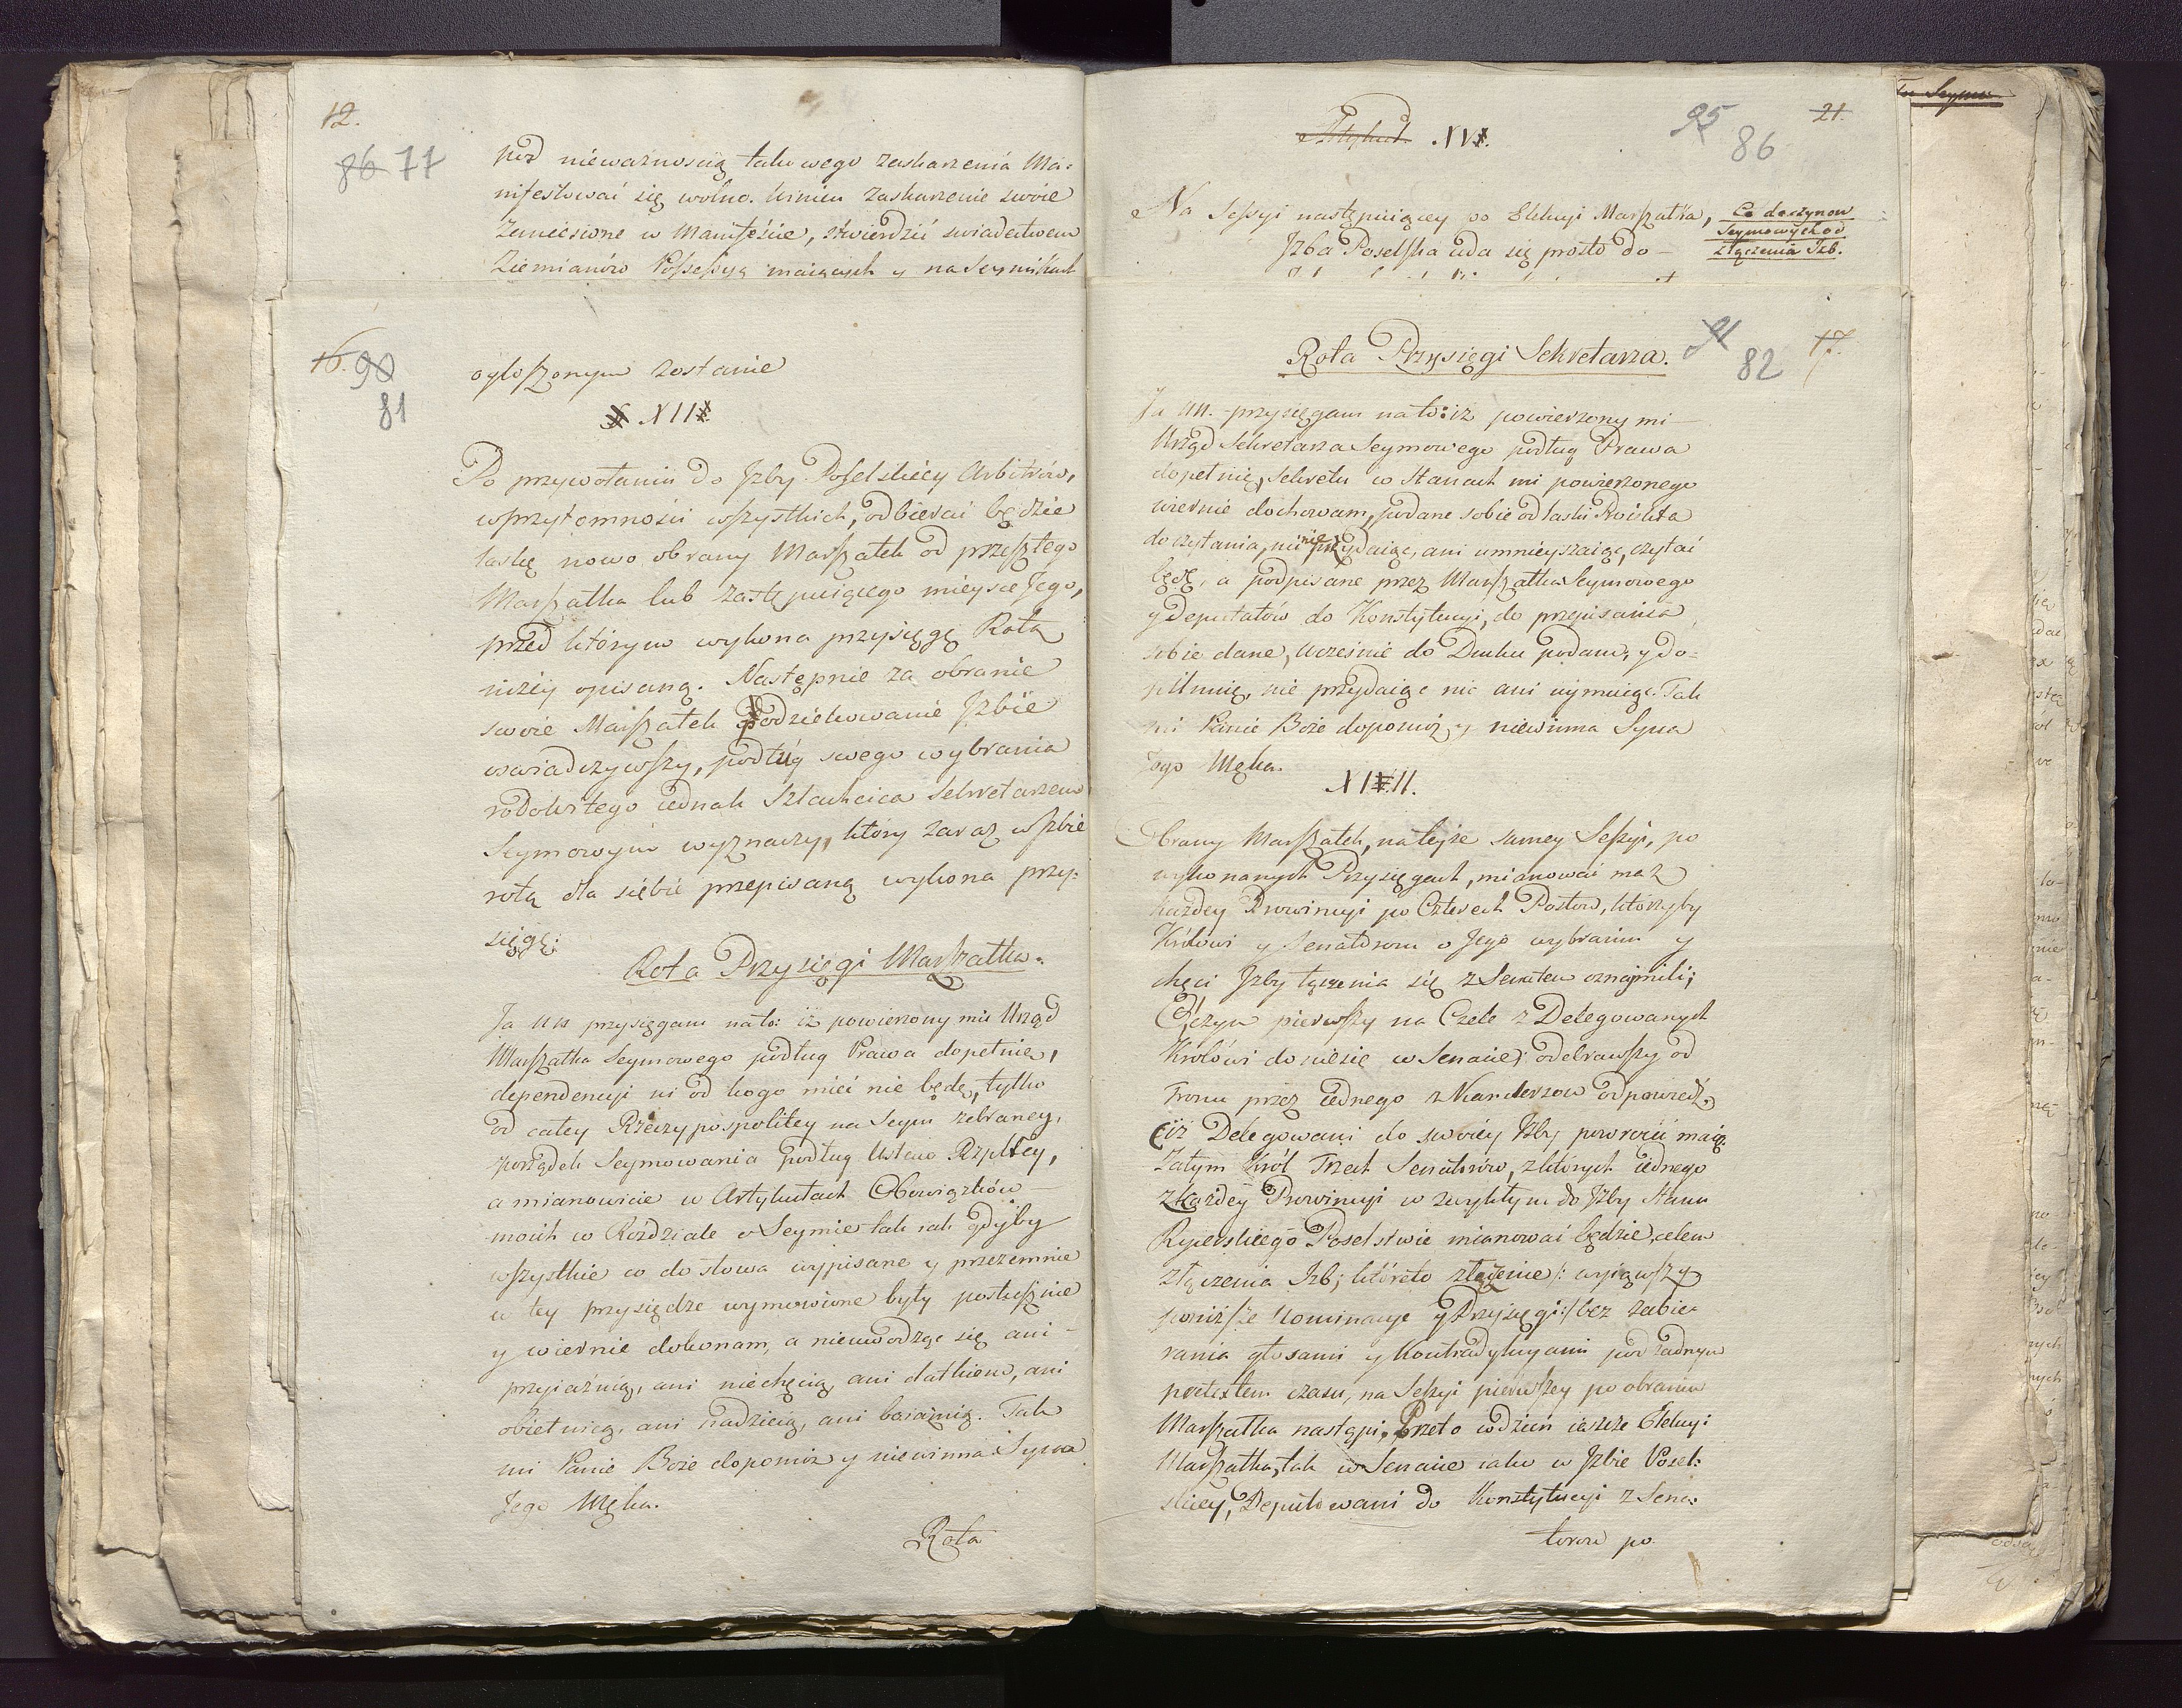 12.
86 77
pod nieważnością takowego zaskarzenia Ma-
nifestować się wolno. Winien zaskarzenie swóie
zaniesione w Manifeście, stwierdzić swiadectwem
Ziemianów Possessyą maiących y na Seymikach
16. 90
81
ogłoszonym zostanie
XII
Po przywołaniu do Jzby Poselskiey Arbitrów,
w przytomności wszystkich, odbierać będzie
laskę nowo obrany Marszałek od przeszłego
Marszałka lub zastępuiącego mieysce Jego,
przed którym wykona przysięgę Rotą
niżéy opisaną. Następnie za obranie
swoie Marszałek podziekowanie Jzbie
oswiadczywszy, podług swego wybrania
rodowitego iednak Szlachcica Sekretarzem
Seymowym wyznaczy, który zaraz w Jzbie
rotą dla siebie przepisaną wykona przy-
sięgę:
Rota Przysięgi Marszałka.
Ja NN przysięgam nato: iż powierzony mi Urząd
Marszałka Seymowego podług Prawa dopełnię,
dependencyi ni od kogo mieć nie będę, tylko
od całey Rzeczypospolitey na Seym zebraney,
porządek Seymowania podług Ustaw Rzpltey,
a mianowicie w Artykułach Obowiązków
moich w Rozdziale o Seymie tak iak gdyby
wszystkie co do słowa wypisane y przezemnie
w tey przysiędze wymowione były posłusznie
y wiernie dokonam, a nieuwodząc się ani
przyiaźnią, ani niechęcią, ani datkiem, ani
obietnicą, ani nadzieią, ani boiaźnią. Tak
mi Panie Boże dopomóż y niewinna Syna
Jego Męka.
Rota
Artykuł XV.
95
86
21.
Na Sessyi następuiącey po Elekcyi Marszałka,
Jzba Poselska uda się prosto do
Co do czynow
Seymowych od
złączenia Izb.
Rota Przysięgi Sekretarza.
91
82
17.
Ja NN. przysięgam nato: iż powierzony mi
Urząd Sekretarza Seymowego podług Prawa
dopełnię, sekretu w Stanach mi powierzonego
wiernie dochowam, podane sobie od laski Proiekta
do czytania, nic nie przydaiąc, ani umnieyszaiąc, czytać
będę, a podpisane przez Marszałka Seymowego
y Deputatów do Konstytucyi, do przepisania
sobie dane, wcześnie do Druku podam, y do-
pilnuię, nie przydaiąc nic ani uymuiąc. Tak
mi Panie Boże dopomóż y niewinna Syna
Jego Męka.
XIII.
Obrany Marszałek, na teyże samey Sessyi, po
wykonanych Przysięgach, mianować ma z
każdey Prowincyi po Czterech Posłow, którzyby
Królowi y Senatorom o Jego wybraniu y
chęci Jzby łączenia się z Senatem oznaymili;
O czym pierwszy na Czele z Delegowanych
Królowi doniesie w Senacie; odebrawszy od
Tronu przez iednego z Kanclerzow odpowiedź,
iż Delegowani do swoiéy Jzby powrócić maią.
Zatym Król Trzech Senatorów, z których iednego
z każdéy Prowincyi w zwykłym do Jzby Stanu
Rycerskiego Poselstwie mianować będzie, celem
złączenia Izb; któreto złączenie /: wyiąwszy
poniższe nominacye y Przysięgi :/ bez zabie-
rania głosami y Kontradykcyami pod żadnym
pretextem czasu, na Sessyi pierwszey po obraniu
Marszałka nastąpi. Przeto w dzień ieszcze Elekcyi
Marszałka, tak w Senacie iako w Jzbie Posel-
skiey, Deputowani do Konstytucyi z Sena-
torow po